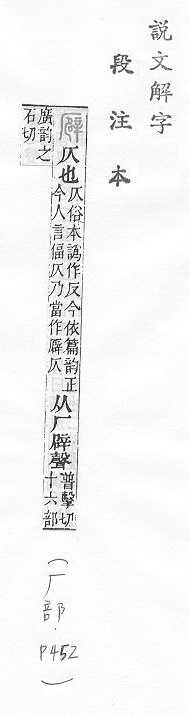 説文解字
段注本
𠪮
仄也
仄俗本譌作反今依篇韵正
今人言偪仄乃當作𠪮仄
从厂辟聲
普擊切
十六部
廣韵之
石切
(厂部.P452)